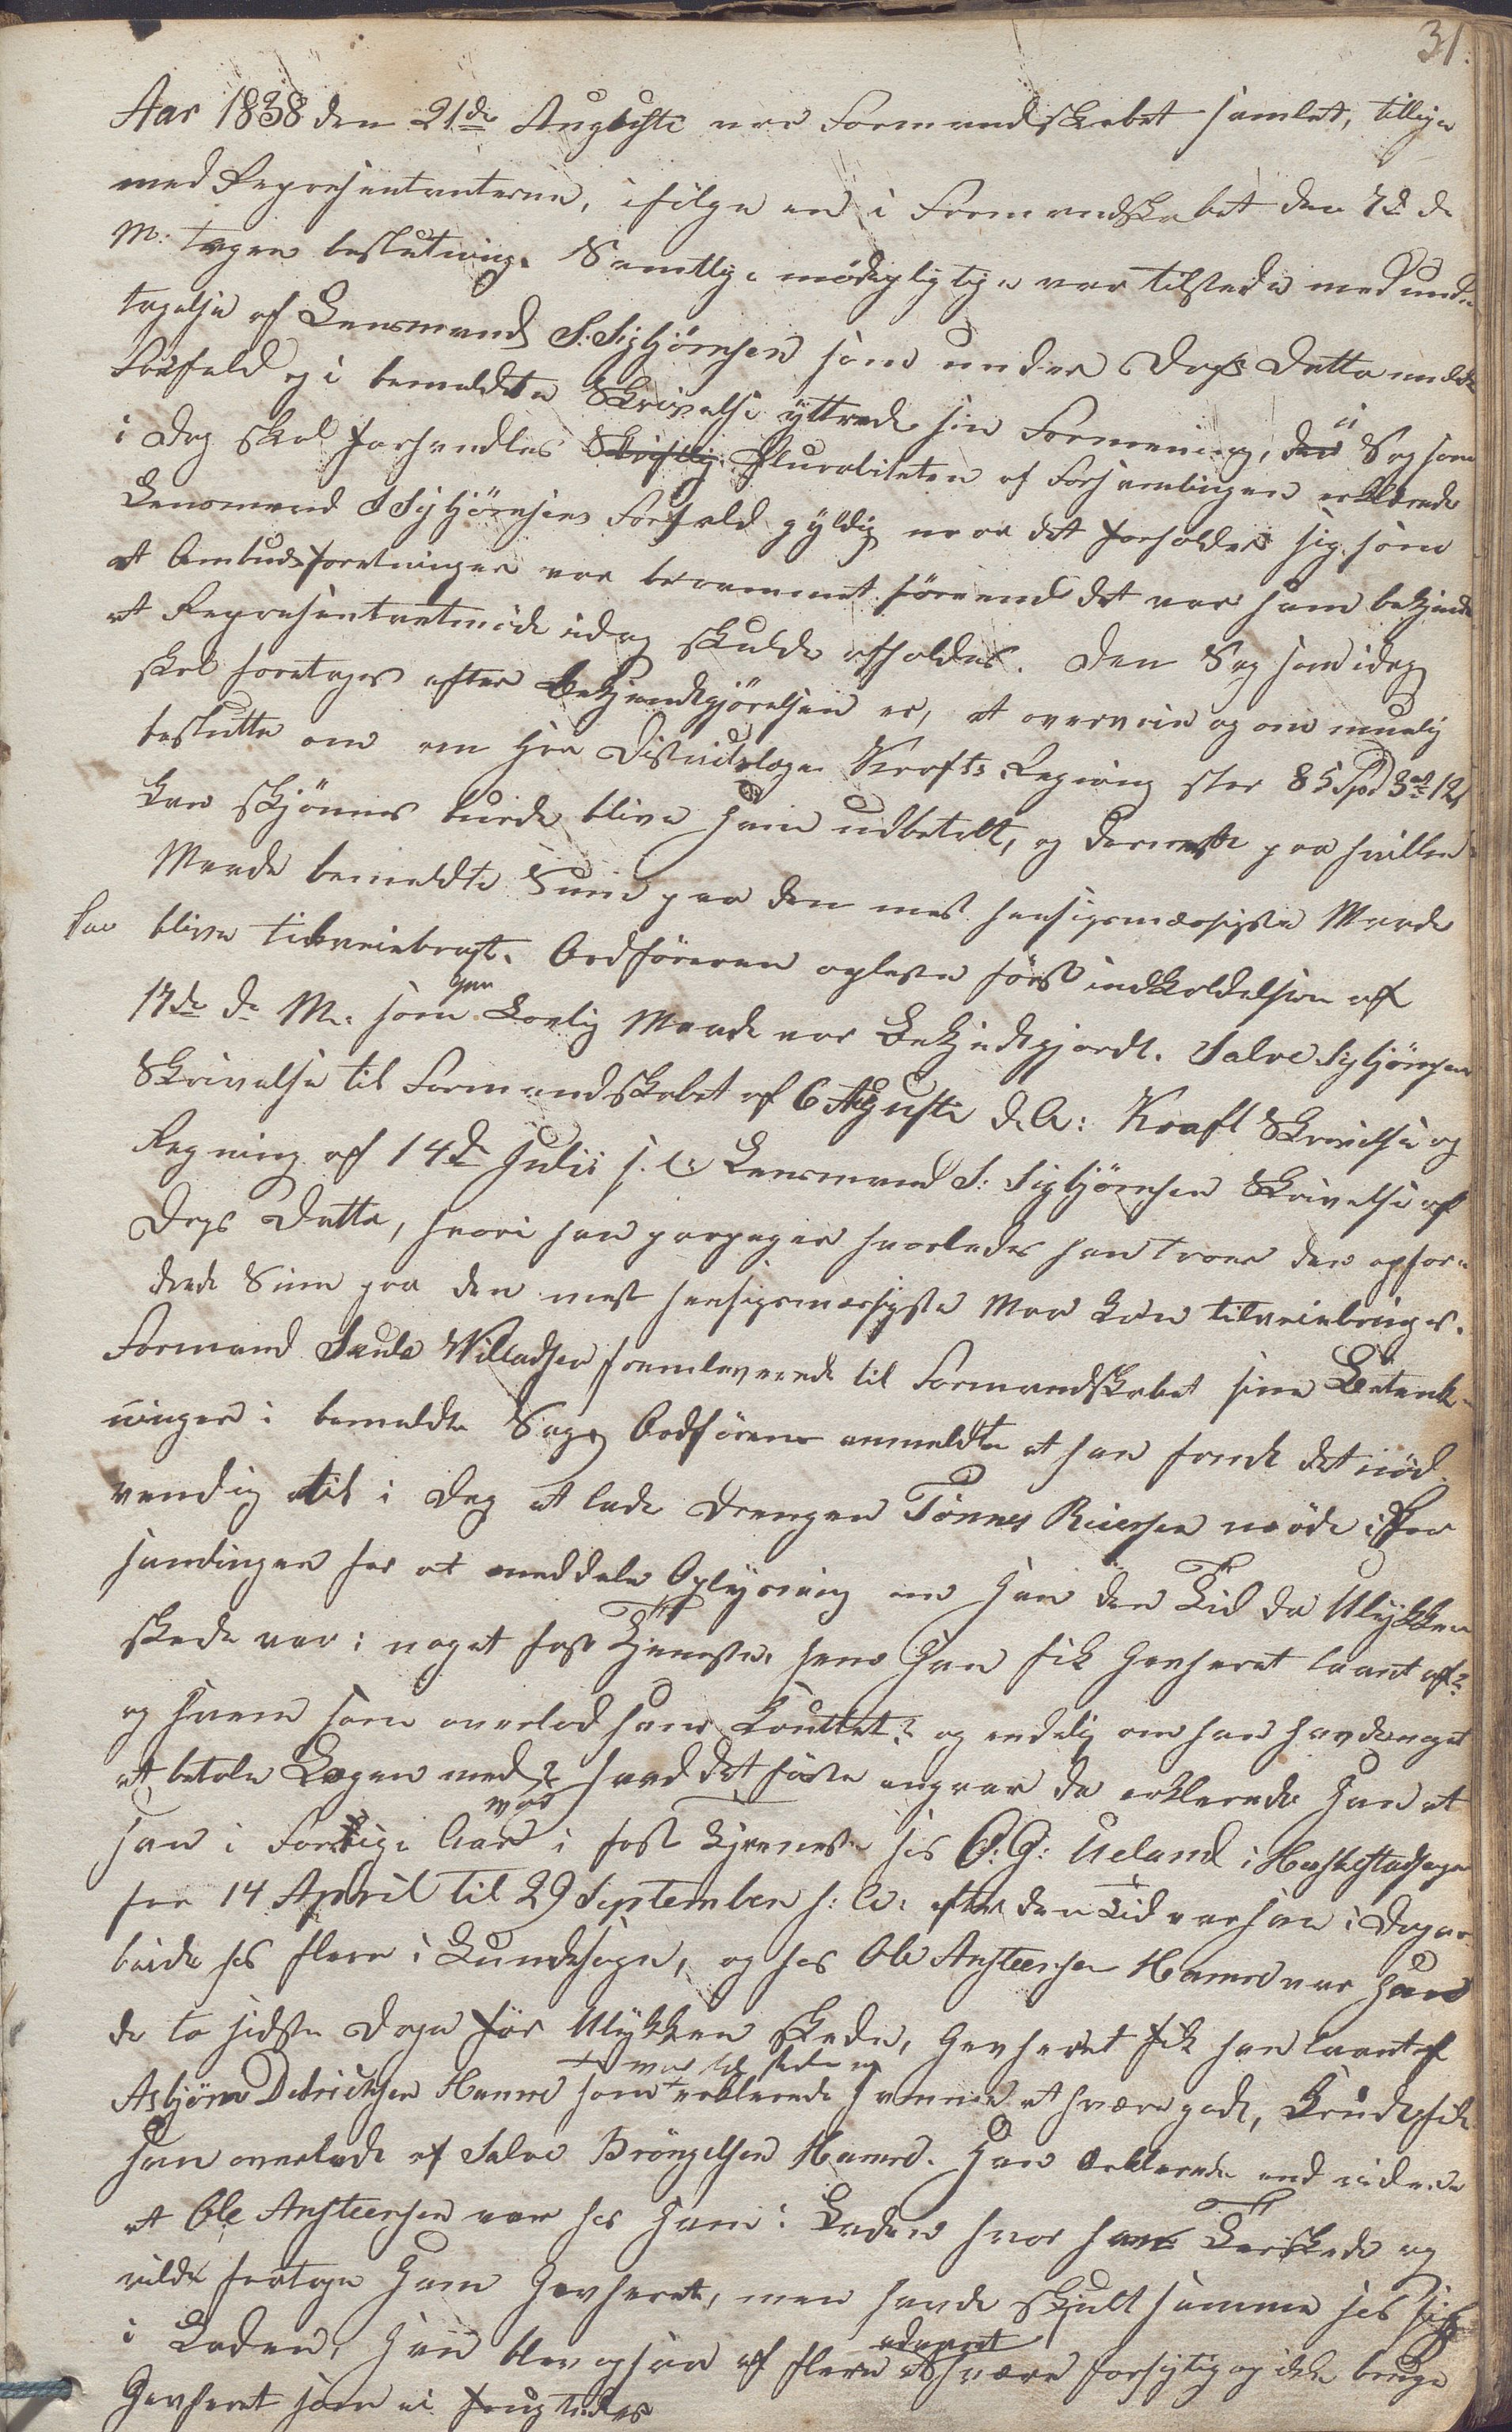 31.
Aar 1838 den 21de Augusti var Formandskabet samlet, tillige
med Repræsentanterne, ifølge en i Formandskabet den 7de d.
M: tagen beslutning. Samtlige mödepligtige var tilstede med und-
tagelse af Lensmand S. Sigbjörnsen som under Dags Datto anmeldte
Forfald og i bemeldte Skrivelse yttrede sin Formening, i den Sag som
i Dag skal forhandles Skriftlig. Pluraliteten af Forsamlingen erklærede
Lensmand S Sigbjörnsens Forfald gyldig naar det forholder sig som
at Ombudsforetninger var berammet förend det var ham bekjendt
at Repræsentantmöde idag skulde afholdes. Den Sag som idag
skal foretages efter Bekjendtgjörelsen er, at overveie og om muelig
beslutte om en Hr Districtslæge Krafts Regning stor 85 Spd 3 ort 12 s
kan skjönnes burde blive ham udbetalt, og dernæst paa hvilken
Maade bemeldte Sum paa den mest hensigsmæssigste Maade
kan blive tilveiebragt. Ordföreren oplæste först indkaldelsen af
17de d. M. som paa Lovlig Maade var Bekjendtgjordt. Salve Sigbjörnsens
Skrivelse til Formandskabet af 6 Augusti d. A: Kraft Skrivelse og
Regning af 14de Julii s. A. Lensmand S: Sigbjörnsen Skrivelse af
Dags Datto, hvori han paapeger hvorledes han troer den opfor-
drede Sum paa den mest hensigsmæssigste Maa kan tilveiebringes.
Formand Villadsen fremleverede til Formandskabet sine Betænk-
ninger i bemeldte Sag. Ordföreren anmeldte at han fandt det nöd-
vendig til i Dag at lade Drengen Tönnes Reiersen möde i For
samlingen for at meddele Oplysning om han den Tid da Ulykken
skede var i noget fast Tjeneste, hvem han fik Gevhæret laant af?
og hvem som overlod ham Kruttet? og endelig om han havde noget
at betale Lægen med? hvad det förste angaar da erklærede han at
han i Forrige Aar var i fast tjeneste hos O: G: Ueland i Heskestadsogn
fra 14 April til 29 September s: A: efter den tid var han i Dagar-
beide hos flere i Lundesogn, og hos Ole Ansteensen Hamre var han
de to sidste Dage för Ulykken skede, Gevhæret fik han laant af
Asbjörn Didrichsen Hamre som var til stede og erklærede samme at hvære gode, Krudt fik
han overlade af Salve Bröngelsen Hamre. Han erklærede end videre
at Ole Ansteensen var hos ham i Laden hvor han Tærskede og
vilde fratage ham Gevhæret, men havde skjult samme hos sig
i Laden, han blev ogsaa af flere advaret at hvære forsigtig og ikke bruge
Gevhæret som ei